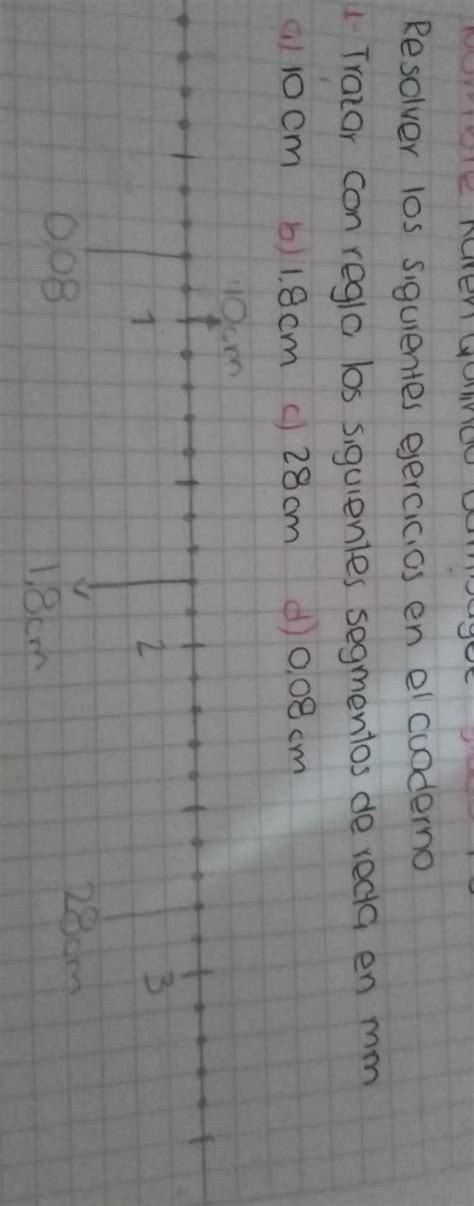 Resolver los siguientes ejercicios en el cuaderno
1- Trazar con regla los siguientes segmentos de recta en mm
a) 10 cm b) 1,8 cm c) 28 cm d) 0,08 cm
10cm
1 2 3
0,08 1,8cm 28cm